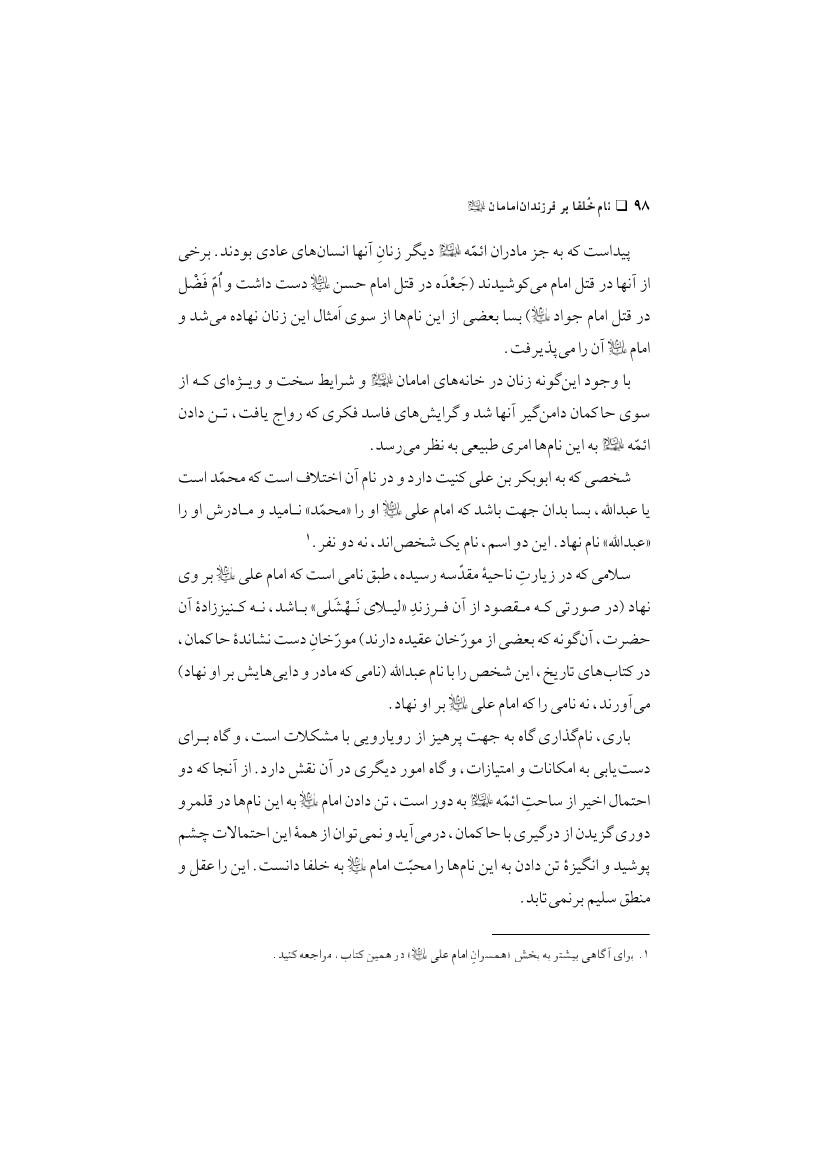 ۹۸ ❑ نام خُلفا بر فرزندان امامان علیهم السلام
پیداست که به جز مادران ائمّه علیهم السلام دیگر زنانِ آنها انسان‌های عادی بودند. برخی
از آنها در قتل امام می‌کوشیدند (جَعْدَه در قتل امام حسن علیه السلام دست داشت و اُمّ فَضْل
در قتل امام جواد علیه السلام) بسا بعضی از این نام‌ها از سوی اَمثال این زنان نهاده می‌شد و
امام علیه السلام آن را می‌پذیرفت.
با وجود این‌گونه زنان در خانه‌های امامان علیهم السلام و شرایط سخت و ویـژه‌ای کـه از
سوی حاکمان دامن‌گیر آنها شد و گرایش‌های فاسد فکری که رواج یافت، تـن دادن
ائمّه علیهم السلام به این نام‌ها امری طبیعی به نظر می‌رسد.
شخصی که به ابوبکر بن علی کنیت دارد و در نام آن اختلاف است که محمّد است
یا عبدالله، بسا بدان جهت باشد که امام علی علیه السلام او را «محمّد» نـامید و مـادرش او را
«عبدالله» نام نهاد. این دو اسم، نام یک شخص‌اند، نه دو نفر.۱
سلامی که در زیارتِ ناحیهٔ مقدّسه رسیده، طبق نامی است که امام علی علیه السلام بر وی
نهاد (در صورتی کـه مـقصود از آن فـرزندِ «لیـلای نَـهْشَلی» بـاشد، نـه کـنیززادهٔ آن
حضرت، آن‌گونه که بعضی از مورّخان عقیده دارند) مورّخانِ دست نشاندهٔ حاکمان،
در کتاب‌های تاریخ، این شخص را با نام عبدالله (نامی که مادر و دایی‌هایش بر او نهاد)
می‌آورند، نه نامی را که امام علی علیه السلام بر او نهاد.
باری، نام‌گذاری گاه به جهت پرهیز از رویارویی با مشکلات است، و گاه بـرای
دست‌یابی به امکانات و امتیازات، و گاه امور دیگری در آن نقش دارد. از آنجا که دو
احتمال اخیر از ساحتِ ائمّه علیهم السلام به دور است، تن دادن امام علیه السلام به این نام‌ها در قلمرو
دوری گزیدن از درگیری با حاکمان، درمی‌آید و نمی‌توان از همهٔ این احتمالات چشم
پوشید و انگیزهٔ تن دادن به این نام‌ها را محبّت امام علیه السلام به خلفا دانست. این را عقل و
منطق سلیم برنمی‌تابد.
۱. برای آگاهی بیشتر به بخش «همسرانِ امام علی علیه السلام» در همین کتاب، مراجعه کنید.